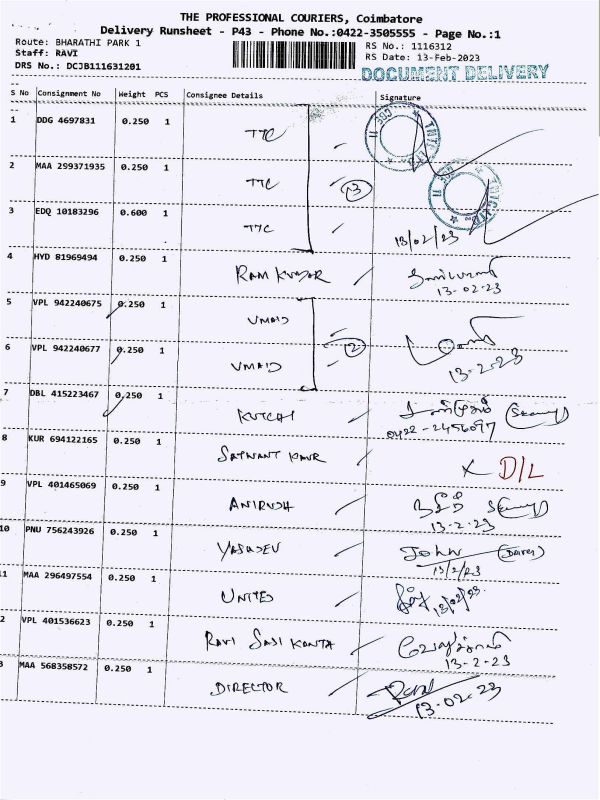 THE PROFESSIONAL COURIERS, Coimbatore
Delivery Runsheet - P43 - Phone No.:0422-3505555 - Page No.:1
Route: BHARATHI PARK 1 RS No.: 1116312
Staff: RAVI RS Date: 13-Feb-2023
DRS No.: DCJB111631201 DOCUMENT DELIVERY
S No Consignment No Weight PCS Consignee Details Signature
1 DDG 4697831 0.250 1 TTC
2 MAA 299371935 0.250 1 TTC 3
3 EDQ 10183296 0.600 1 TTC 13/02/23
4 HYD 81969494 0.250 1 RAM KUMAR
13-02-23
5 VPL 942240675 0.250 1 VMAID
6 VPL 942240677 0.250 1 VMAID 2 13-2-23
7 DBL 415223467 0,250 1 KUTCHI
0422-2456097
8 KUR 694122165 0.250 1 SATWANT KAUR X D/L
9 VPL 401465069 0.250 1 ANIRUSH
13-2-23
10 PNU 756243926 0.250 1 YASUDEV John (Driver)
13/2/23
11 MAA 296497554 0.250 1 UNITED 13/02/23
2 VPL 401536623 0.250 1 RAVI SASI KANTA
13-2-23
3 MAA 568358572 0.250 1 DIRECTOR
13-02-23